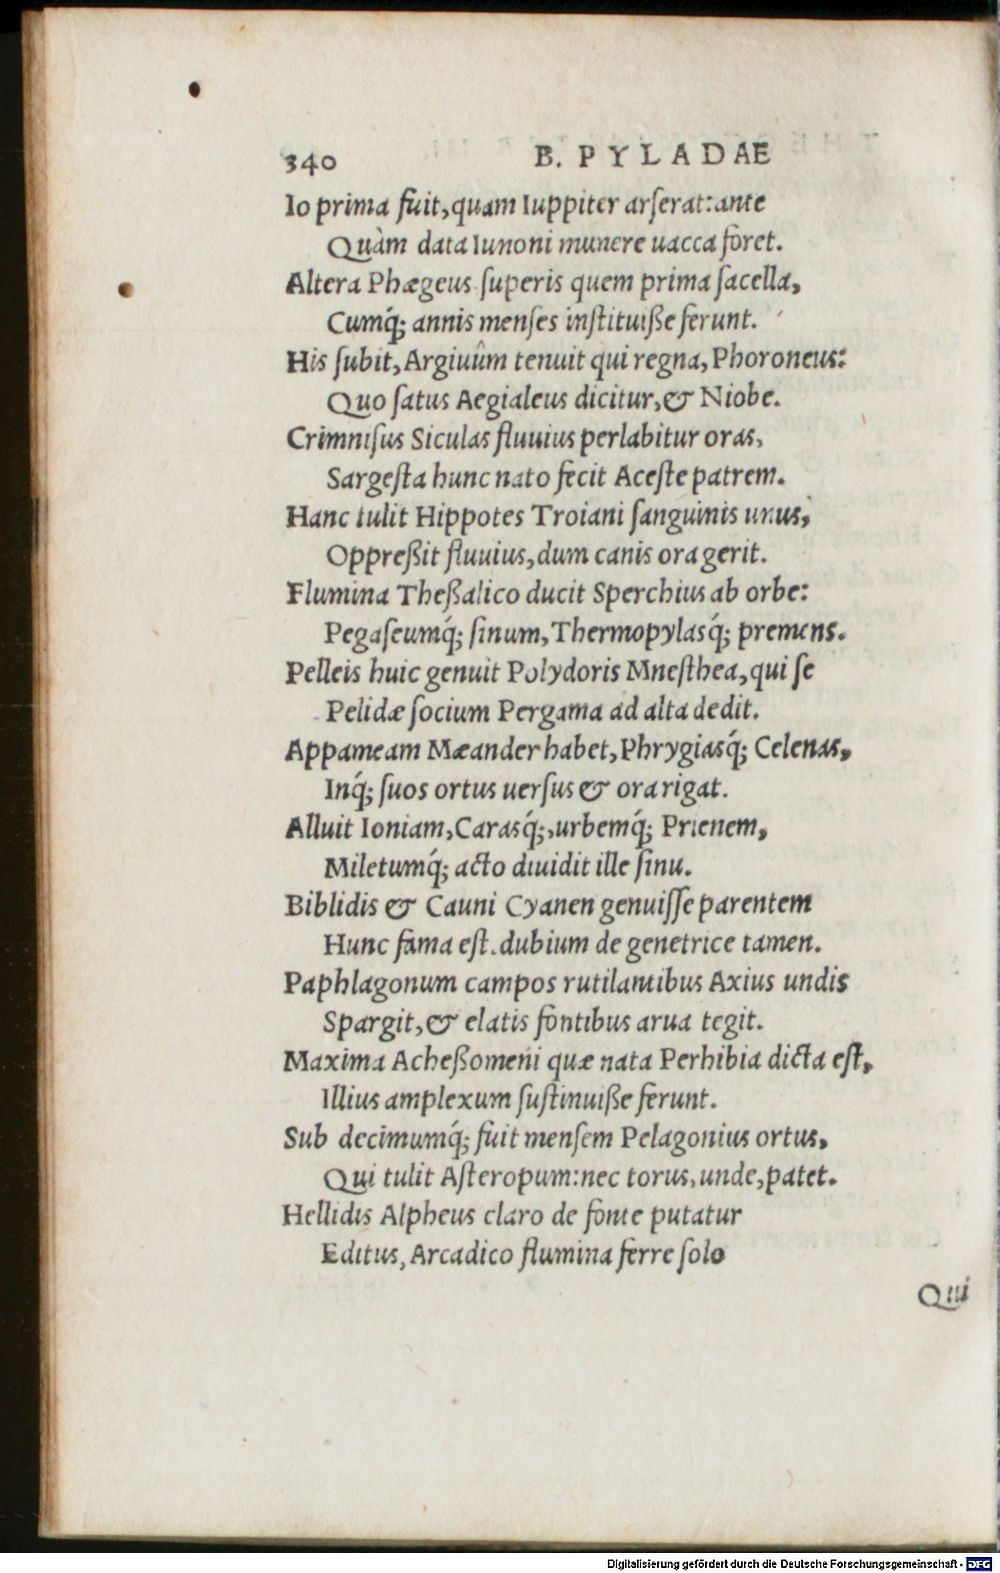 340 B. PYLADAE
Io prima fuit, quam Iuppiter arſerat: ante
Quàm data Iunoni munere uacca foret.
Altera Phægeus ſuperis quem prima ſacella,
Cumq́; annis menſes inſtituiße ferunt.
His ſubit, Argiuûm tenuit qui regna, Phoroneus:
Quo ſatus Aegialeus dicitur, & Niobe.
Crimniſus Siculas fluuius perlabitur oras,
Sargeſta hunc nato fecit Aceſte patrem.
Hanc tulit Hippotes Troiani ſanguinis unus,
Oppreßit fluuius, dum canis ora gerit.
Flumina Theßalico ducit Sperchius ab orbe:
Pegaſeumq́; ſinum, Thermopylasq́; premens.
Pelleis huic genuit Polydoris Mneſthea, qui ſe
Pelidæ ſocium Pergama ad alta dedit.
Appameam Mæander habet, Phrygiasq́; Celenas,
Inq́; ſuos ortus uerſus & ora rigat.
Alluit Ioniam, Carasq́;, urbemq́; Prienem,
Miletumq́; acto diuidit ille ſinu.
Biblidis & Cauni Cyanen genuiſſe parentem
Hunc fama eſt. dubium de genetrice tamen.
Paphlagonum campos rutilantibus Axius undis
Spargit, & elatis fontibus arua tegit.
Maxima Acheßomeni quæ nata Perhibia dicta eſt,
Illius amplexum ſuſtinuiße ferunt.
Sub decimumq́; fuit menſem Pelagonius ortus,
Qui tulit Aſteropum: nec torus, unde, patet.
Hellidis Alpheus claro de fonte putatur
Editus, Arcadico flumina ferre ſolo
Qui
Digitalisierung gefördert durch die Deutsche Forschungsgemeinschaft - DFG